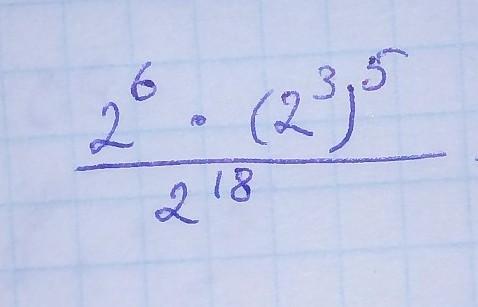 2⁶ · (2³)⁵
2¹⁸